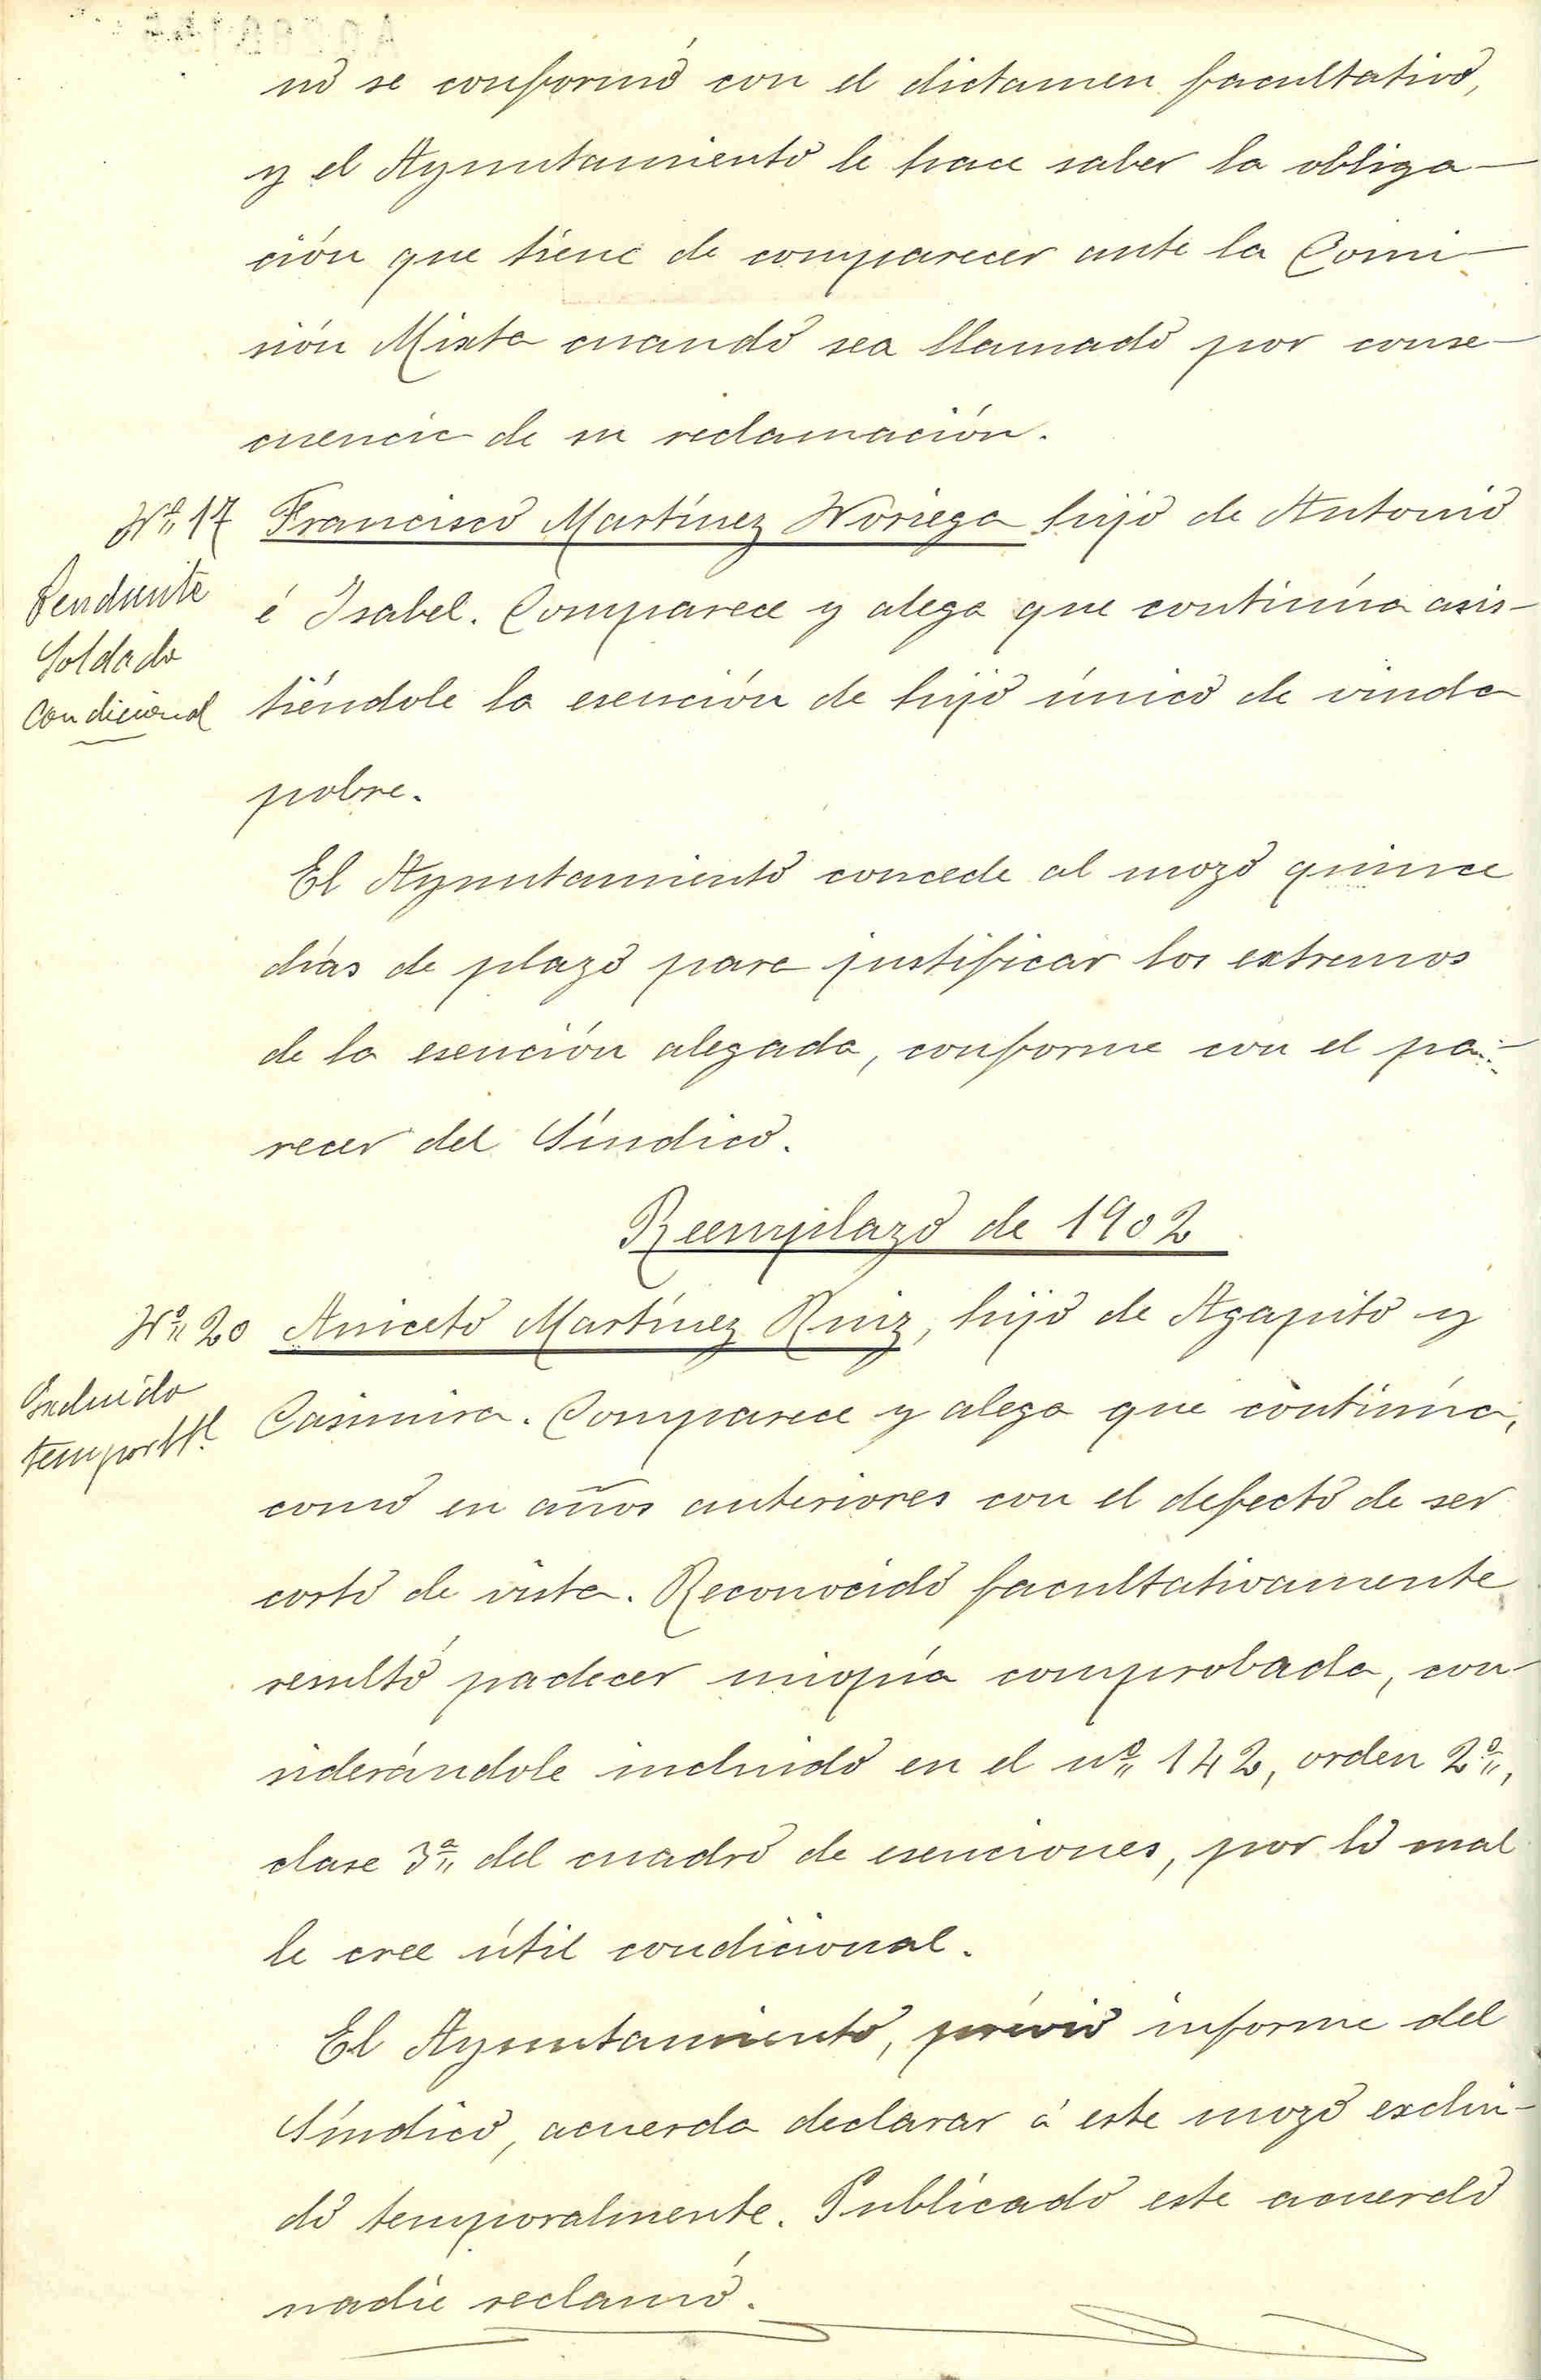 no se conformó con el dictamen facultativo,
y el Ayuntamiento le hace saber la obliga-
ción que tiene de comparecer ante la Comi-
sión Mixta cuando sea llamado por conse-
cuencia de su reclamación.
Nº 17 Francisco Martínez Noriega hijo de Antonio
Pendiente
é Isabel. Comparece y alega que continúa asis-
Soldado
tiéndole la esención de hijo único de viuda
Condicional
pobre.
El Ayuntamiento concede al mozo quince
días de plazo para justificar los extremos
de la esención alegada, conforme con el pa-
recer del Síndico.
Reemplazo de 1902
Nº 20 Aniceto Martínez Ruiz, hijo de Agapito y
Casimira. Comparece y alega que continúa,
temporal
como en años anteriores con el defecto de ser
corto de vista. Reconocido facultativamente
resultó padecer miopía comprobada, con-
siderándole incluido en el nº 142, orden 2º,
clase 3ª del cuadro de esenciones, por lo cual
le cree útil condicional.
El Ayuntamiento, prévio informe del
Síndico, acuerda declarar á este mozo exclui-
do temporalmente. Publicado este acuerdo
nadie reclamó.